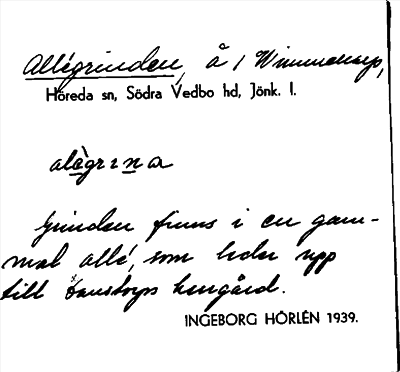 Allégrinden, å / Wimmelsarp,
Höreda sn, Södra Vedbo hd, Jönk. l.
alègrɪna
Grinden finns i en gam-
mal allé, som leder upp
till herrgård.
INGEBORG HÖRLÉN 1939.